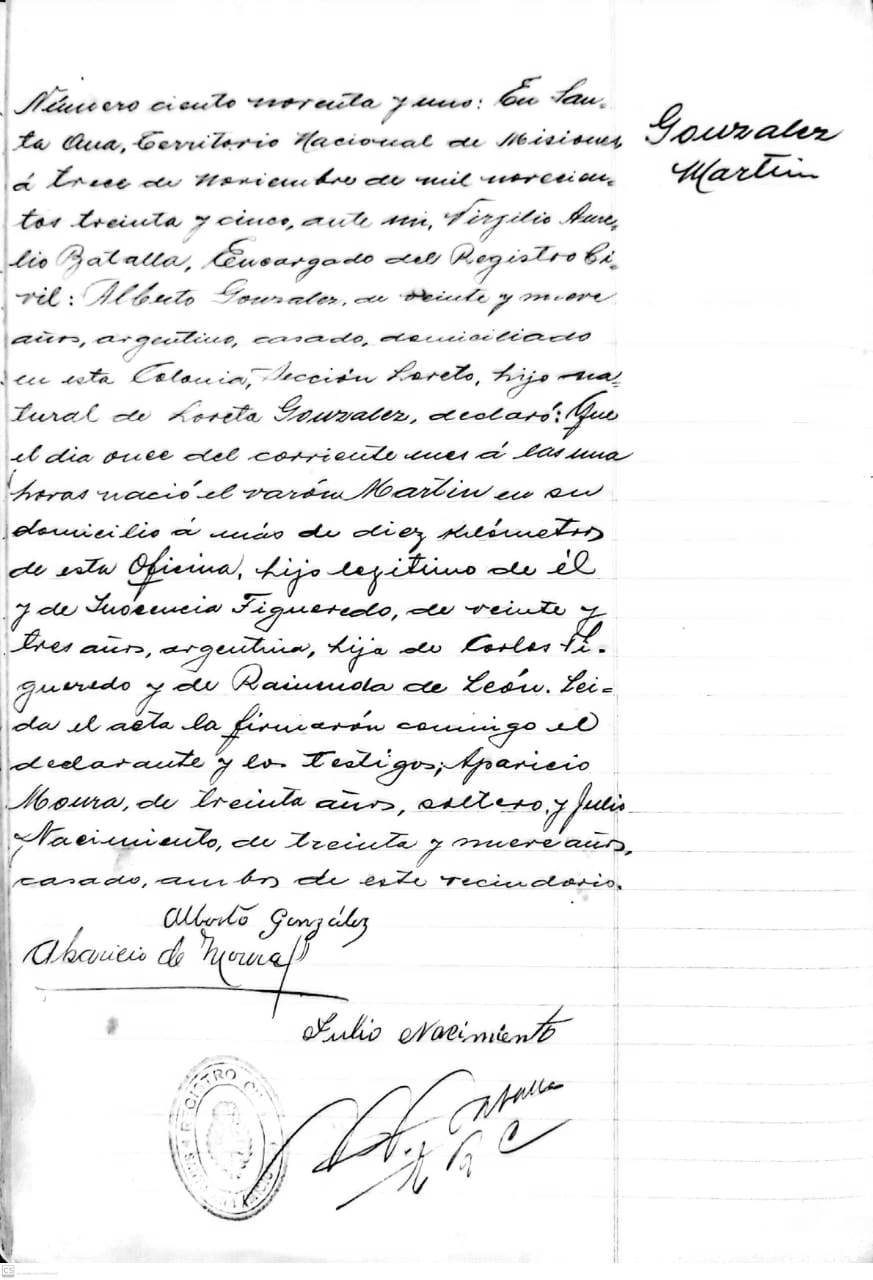 Número ciento noventa y uno: En San-
ta Ana, Territorio Nacional de Misiones
á trece de Noviembre de mil novecien-
tos treinta y cinco, ante mi, Virgilio Aure-
lio Batalla, Encargado del Registro Ci-
vil: Alberto Gonzalez, de veinte y nueve
años, argentino, casado, domiciliado
en esta Colonia, Sección Loreto, hijo na-
tural de Loreta Gonzalez, declaró: Que
el dia once del corriente mes á las una
horas nació el varón Martin en su
domicilio á más de diez kilómetros
de esta Oficina, hijo legitimo de él
y de Inocencia Figueredo, de veinte y
tres años, argentina, hija de Carlos Fi-
gueredo y de Raimunda de León. Lei-
da el acta la firmarón conmigo el
declarante y los testigos; Aparicio
Moura, de treinta años, soltero, y Julio
Nacimiento, de treinta y nueve años,
casado, ambos de este vecindario.
Gonzalez
Martin
Alberto González
Aparicio de Moura
Julio Nacimiento
Batalla
REGISTRO